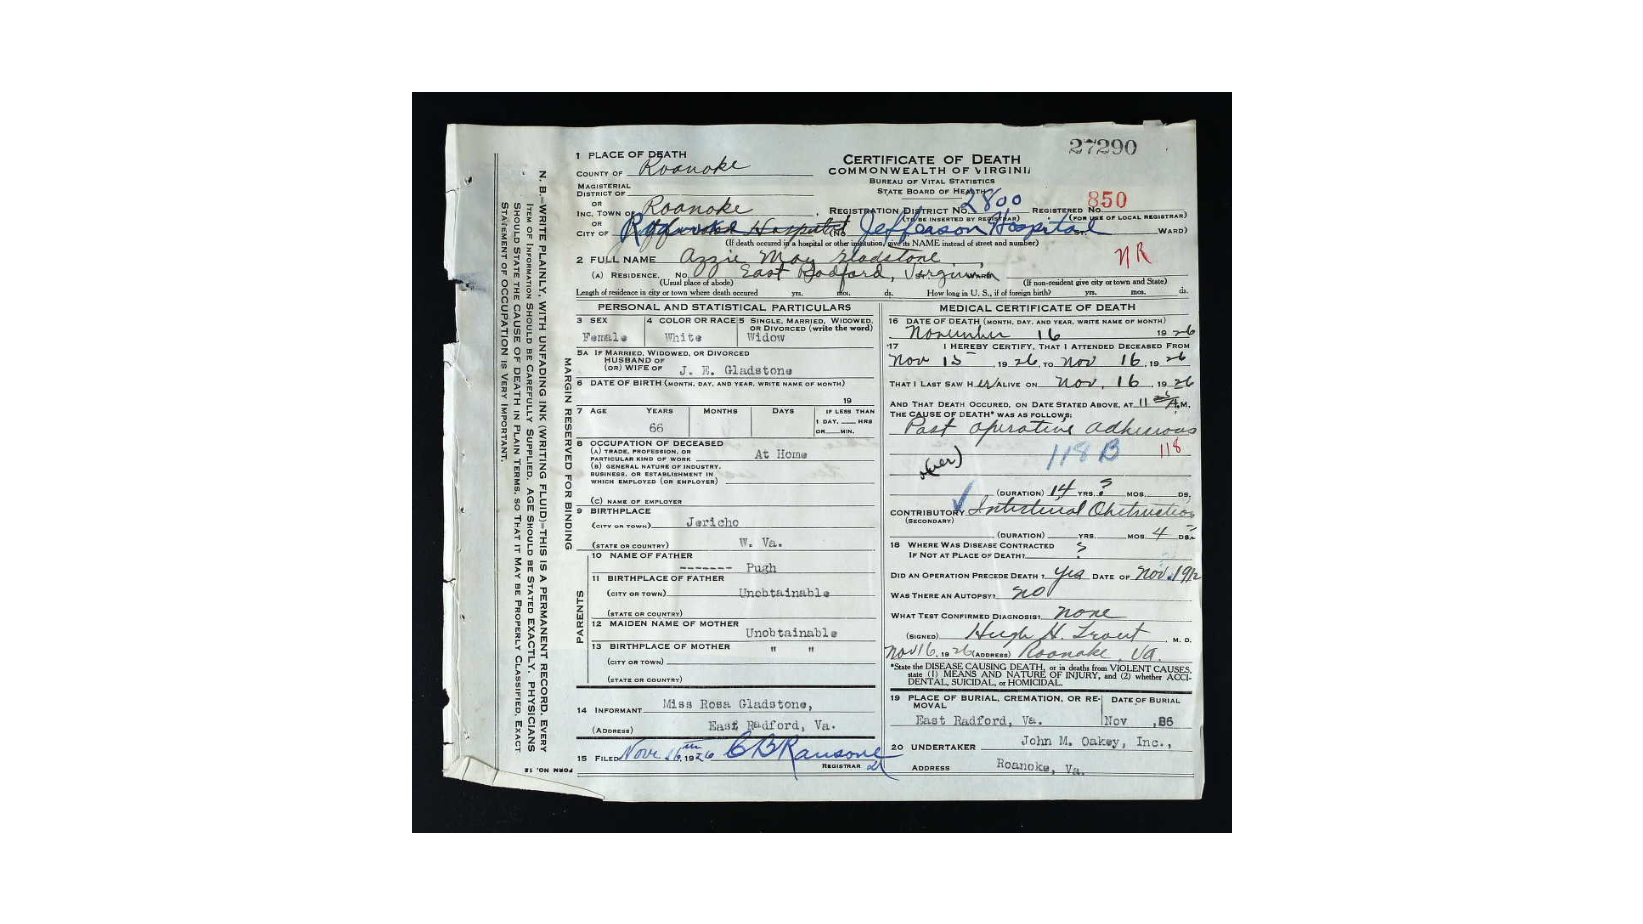 27290
1 PLACE OF DEATH
COUNTY OF Roanoke
CERTIFICATE OF DEATH
COMMONWEALTH OF VIRGINI
BUREAU OF VITAL STATISTICS
STATE BOARD OF HEALTH
MAGISTERIAL
DISTRICT OF
OR
INC. TOWN OF Roanoke
REGISTRATION DISTRICT NO. 2800 REGISTERED NO. 850
(TO BE INSERTED BY REGISTRAR) (FOR USE OF LOCAL REGISTRAR)
OR
CITY OF Hospital (NO. Jefferson Hospital WARD)
(If death occured in a hospital or other institution, give its NAME instead of street and number)
2 FULL NAME Azzie May Gladstone
NR
(A) RESIDENCE, NO. East Radford, Virginia WARD
(Usual place of abode) (If non-resident give city or town and State)
Length of residence in city or town where death occured yrs. mos. ds. How long in U. S., if of foreign birth? yrs. mos. ds.
PERSONAL AND STATISTICAL PARTICULARS
3 SEX
Female
4 COLOR OR RACE
White
5 SINGLE, MARRIED, WIDOWED,
OR DIVORCED (write the word)
Widow
5A IF MARRIED, WIDOWED, OR DIVORCED
HUSBAND OF
(OR) WIFE OF J. E. Gladstone
6 DATE OF BIRTH (MONTH, DAY, AND YEAR, WRITE NAME OF MONTH)
19
7 AGE YEARS MONTHS DAYS IF LESS THAN
1 DAY, HRS
OR MIN.
66
8 OCCUPATION OF DECEASED
(A) TRADE, PROFESSION, OR
PARTICULAR KIND OF WORK At Home
(B) GENERAL NATURE OF INDUSTRY,
BUSINESS, OR ESTABLISHMENT IN
WHICH EMPLOYED (OR EMPLOYER)
(C) NAME OF EMPLOYER
9 BIRTHPLACE
(CITY OR TOWN) Jericho
(STATE OR COUNTRY) W. Va.
PARENTS
10 NAME OF FATHER
------- Pugh
11 BIRTHPLACE OF FATHER
(CITY OR TOWN) Unobtainable
(STATE OR COUNTRY)
12 MAIDEN NAME OF MOTHER
Unobtainable
13 BIRTHPLACE OF MOTHER " "
(CITY OR TOWN)
(STATE OR COUNTRY)
14 INFORMANT Miss Rosa Gladstone,
(ADDRESS) East Radford, Va.
15 FILED Nov. 16th 1926 C B Ransone
REGISTRAR
MEDICAL CERTIFICATE OF DEATH
16 DATE OF DEATH (MONTH, DAY, AND YEAR, WRITE NAME OF MONTH)
November 16 1926
17 I HEREBY CERTIFY, THAT I ATTENDED DECEASED FROM
Nov 15, 1926, TO Nov 16, 1926
THAT I LAST SAW HER ALIVE ON Nov. 16, 1926
AND THAT DEATH OCCURED, ON DATE STATED ABOVE, AT 11 A.M.
THE CAUSE OF DEATH* WAS AS FOLLOWS:
Post operative adhesions
118 B 118
(over)
(DURATION) 14 YRS. ? MOS. DS.
CONTRIBUTORY Intestinal Obstruction
(SECONDARY)
(DURATION) YRS. MOS. 4 DS.
18 WHERE WAS DISEASE CONTRACTED
IF NOT AT PLACE OF DEATH? ?
DID AN OPERATION PRECEDE DEATH? yes DATE OF Nov. 1912
WAS THERE AN AUTOPSY? no
WHAT TEST CONFIRMED DIAGNOSIS? none
(SIGNED) Hugh H. Trout, M. D.
Nov 16, 1926 (ADDRESS) Roanoke, Va.
*State the DISEASE CAUSING DEATH, or in deaths from VIOLENT CAUSES,
state (1) MEANS AND NATURE OF INJURY, and (2) whether ACCI-
DENTAL, SUICIDAL, or HOMICIDAL.
19 PLACE OF BURIAL, CREMATION, OR RE-
MOVAL
East Radford, Va.
DATE OF BURIAL
Nov ,86
20 UNDERTAKER John M. Oakey, Inc.,
ADDRESS Roanoke, Va.
MARGIN RESERVED FOR BINDING
N. B.—WRITE PLAINLY, WITH UNFADING INK (WRITING FLUID)—THIS IS A PERMANENT RECORD. EVERY
ITEM OF INFORMATION SHOULD BE CAREFULLY SUPPLIED. AGE SHOULD BE STATED EXACTLY. PHYSICIANS
SHOULD STATE THE CAUSE OF DEATH IN PLAIN TERMS, SO THAT IT MAY BE PROPERLY CLASSIFIED. EXACT
STATEMENT OF OCCUPATION IS VERY IMPORTANT.
FORM NO. 12